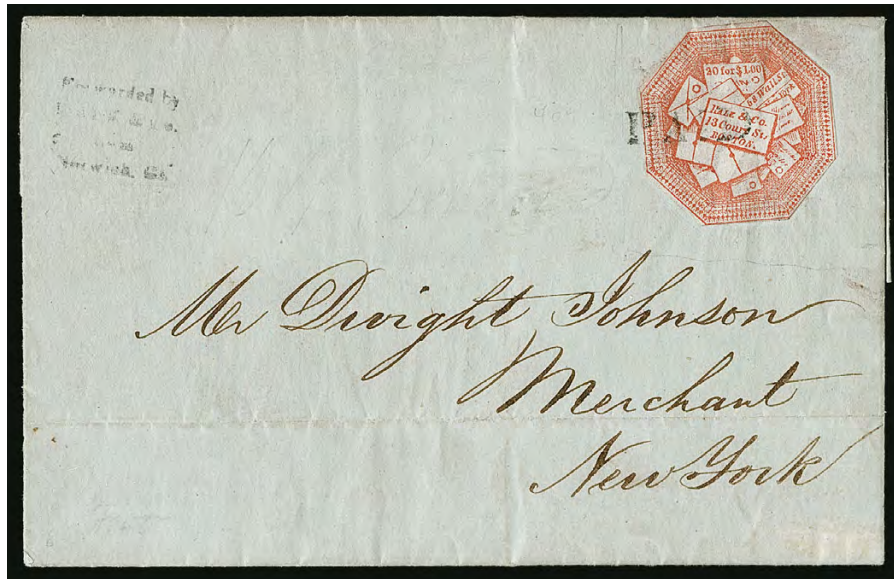 Forwarded by
20 for $1.00
HALE & Co.
13 Court St.
BOSTON.
Mr Dwight Johnson
Merchant
New York